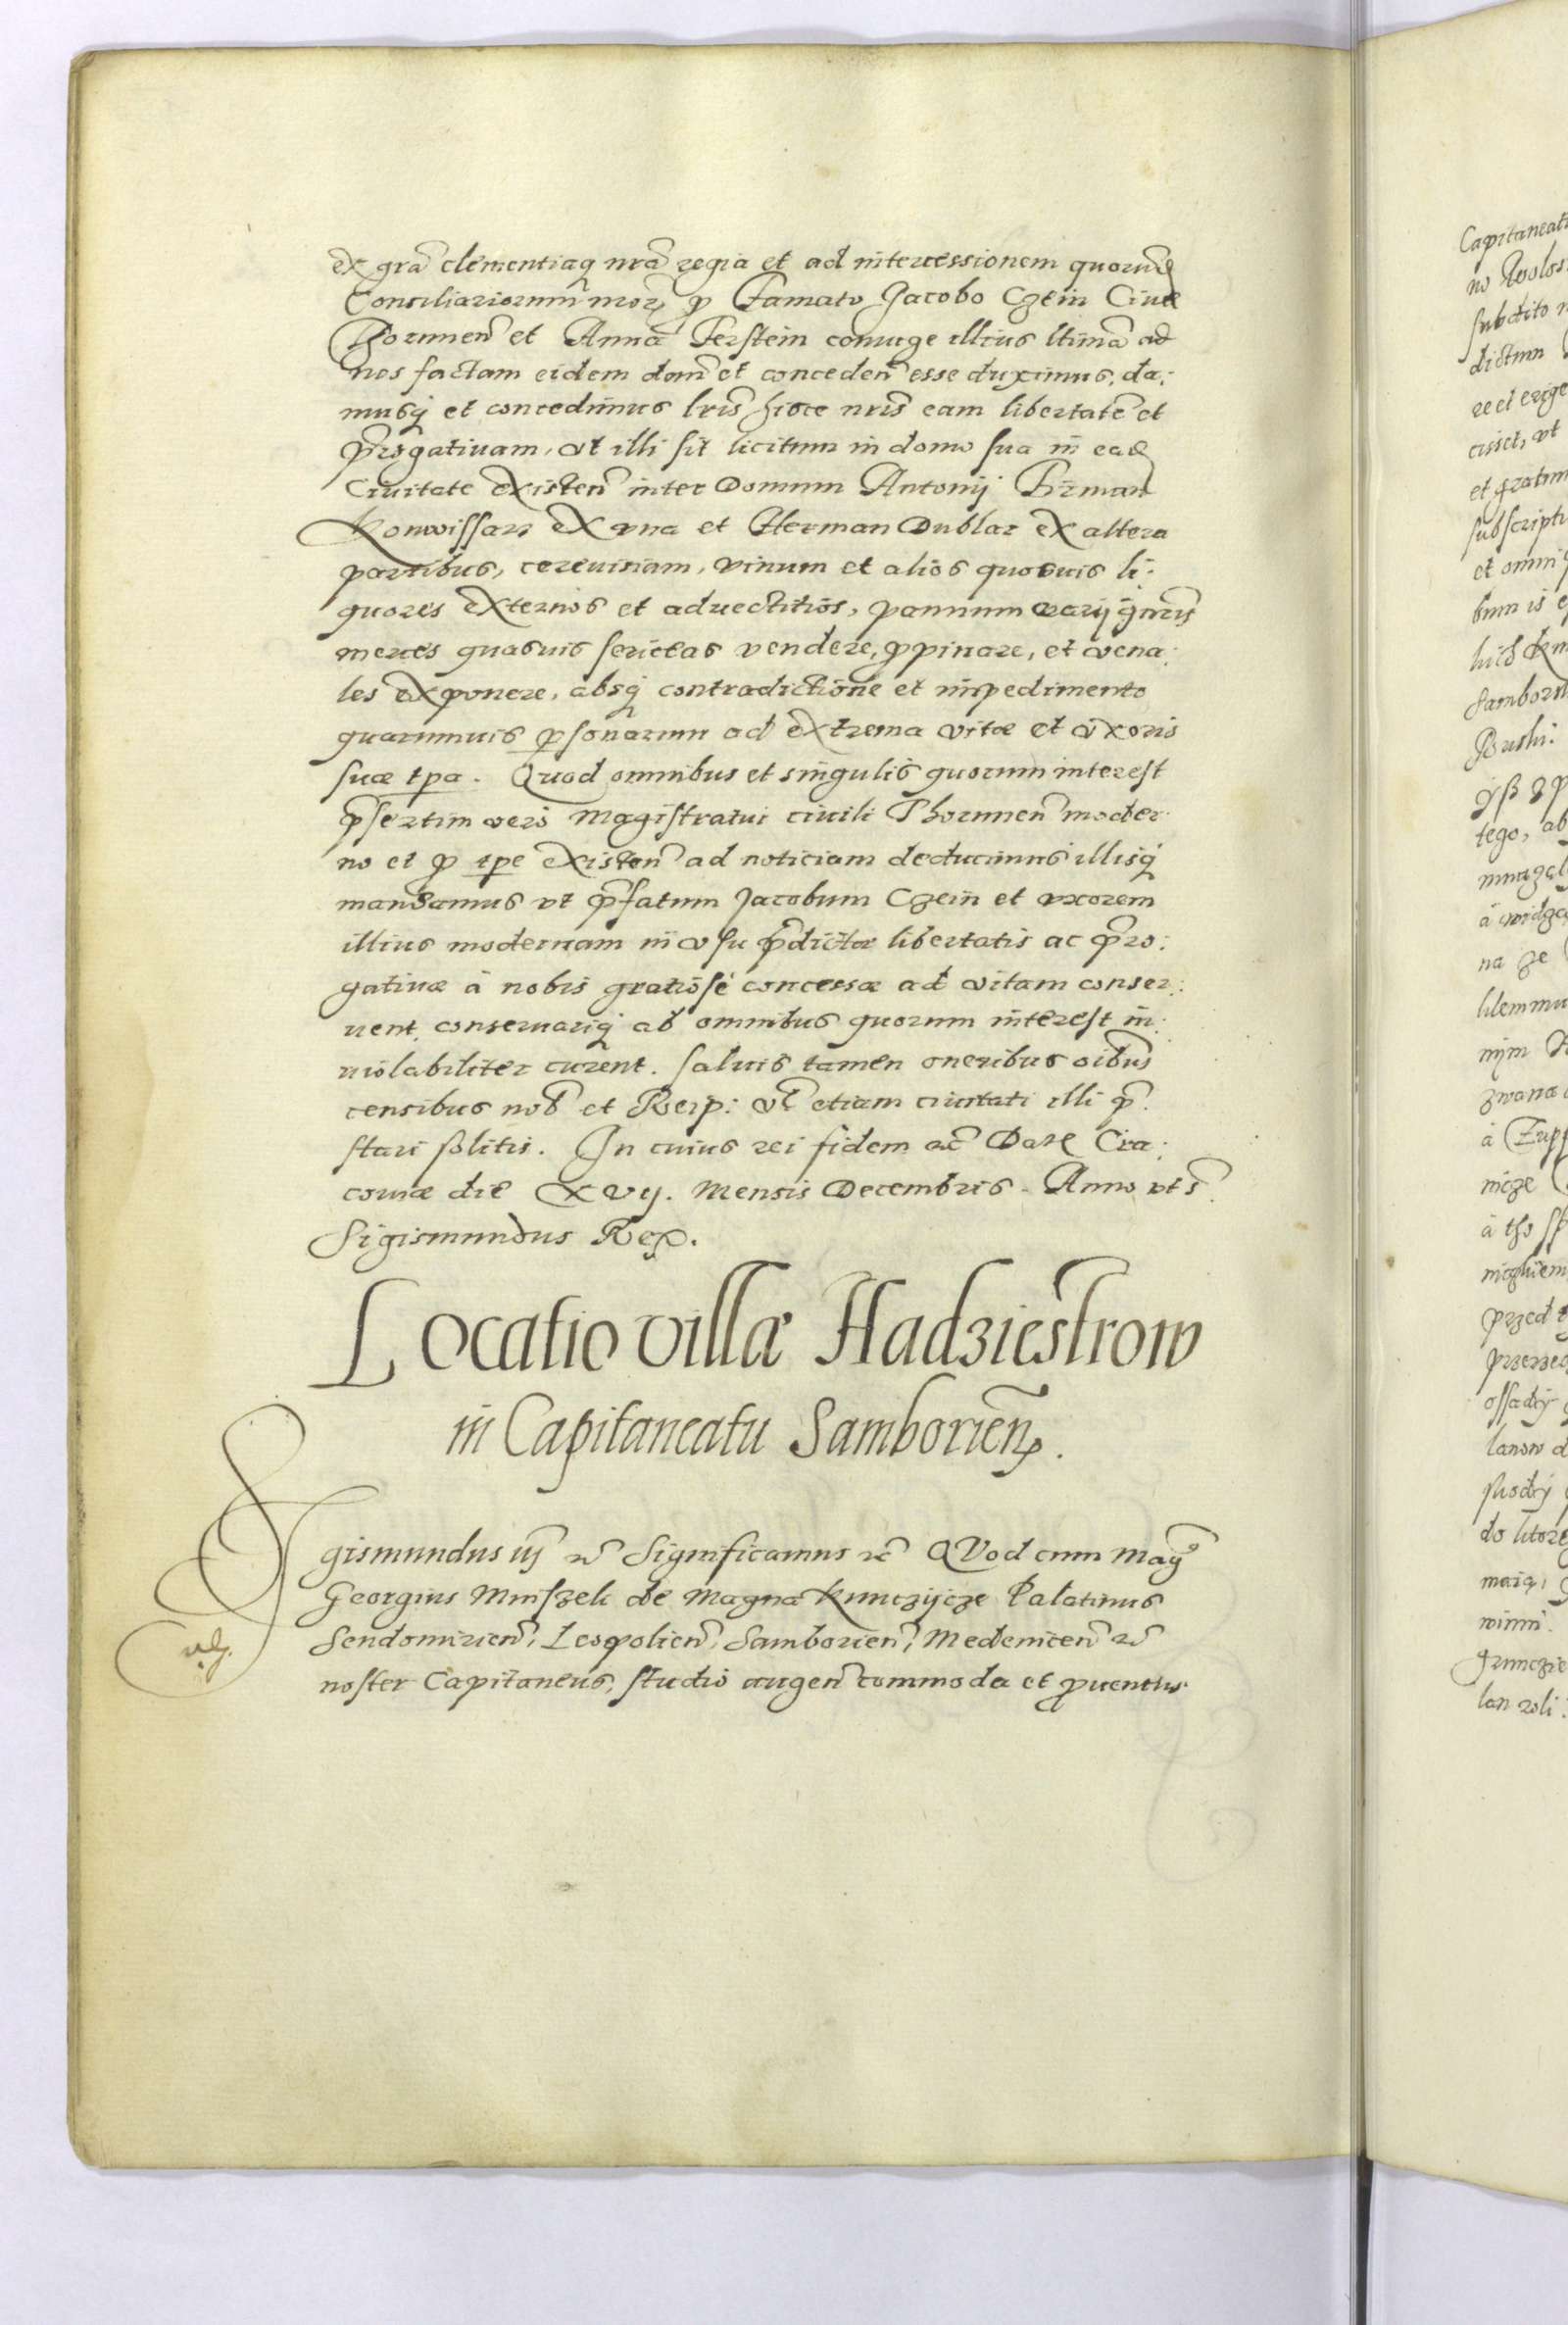 ex grã clementiaq nrã regia et ad intercessionem quorund
Conciliariorum nror p Famato Jacobo Czein Cive
Thorunen et Anna Ferstein coniuge illius ltimã ad
nos factam eidem dom et conceden esse duximus, da:
musq et concedimus lris hisce nris eam libertatẽ et
prrogatiuam, vt illi sit licitum in domo sua in ead
Ciuitate existen inter Domum Antonij Birman
Konwissarz ex vna et Herman Dublar ex altera
partibus, cereuisiam, vinum et alios quosuis li:
quores externos et aduectitios, pannum varij gnris
merces quasuis sericeas vendere, ppinare, et vena:
les exponere, absq contradictione et impedimento
quarumuis psonarum ad extrema vitæ et vxoris
suæ tpa. Quod omnibus et singulis quorum interest
psertim vero Magistratui ciuili Thorunen moder:
no et p tpe existen ad noticiam deducimus illisq
mandamus vt pfatum Jacobum Czein et vxorem
illius modernam in vsu pdictæ libertatis ac prro:
gatiuæ à nobis gratiosè concessæ ad vitam conser:
uent, conseruariq ab omnibus quorum interest in:
uiolabiliter curent. Saluis tamen oneribus oibus
censibus nob et Reip: vl etiam ciuitati illi p:
stari solitis. In cuius rei fidem etc Dat Cra:
couiæ die XVij. Mensis Decembris. Anno vt s
Sigismundus Rex.
Locatio villæ Hadziestrow
in Capitaneatu Samborien.
Sigismundus iij etc Significamus etc QVod cum Mag
Georgius Mniszek de Magna Kunczijcze Palatinus
Sendomirien, Leopolien, Samborien, Medenicen etc
noster Capitaneus, studio augen commoda et prouentus
Capitaneat
no Wolos
subdito n
dictum
re et erige
cisset, vt
et gratum
subscripti
et omni
bum is e
Samboril
Ruski:
tego, ab
à widzą
na ze
nijm
zwana
nicze
przed
przerzeq
ossadij
lanow d
do litore
winni.
lan roli: